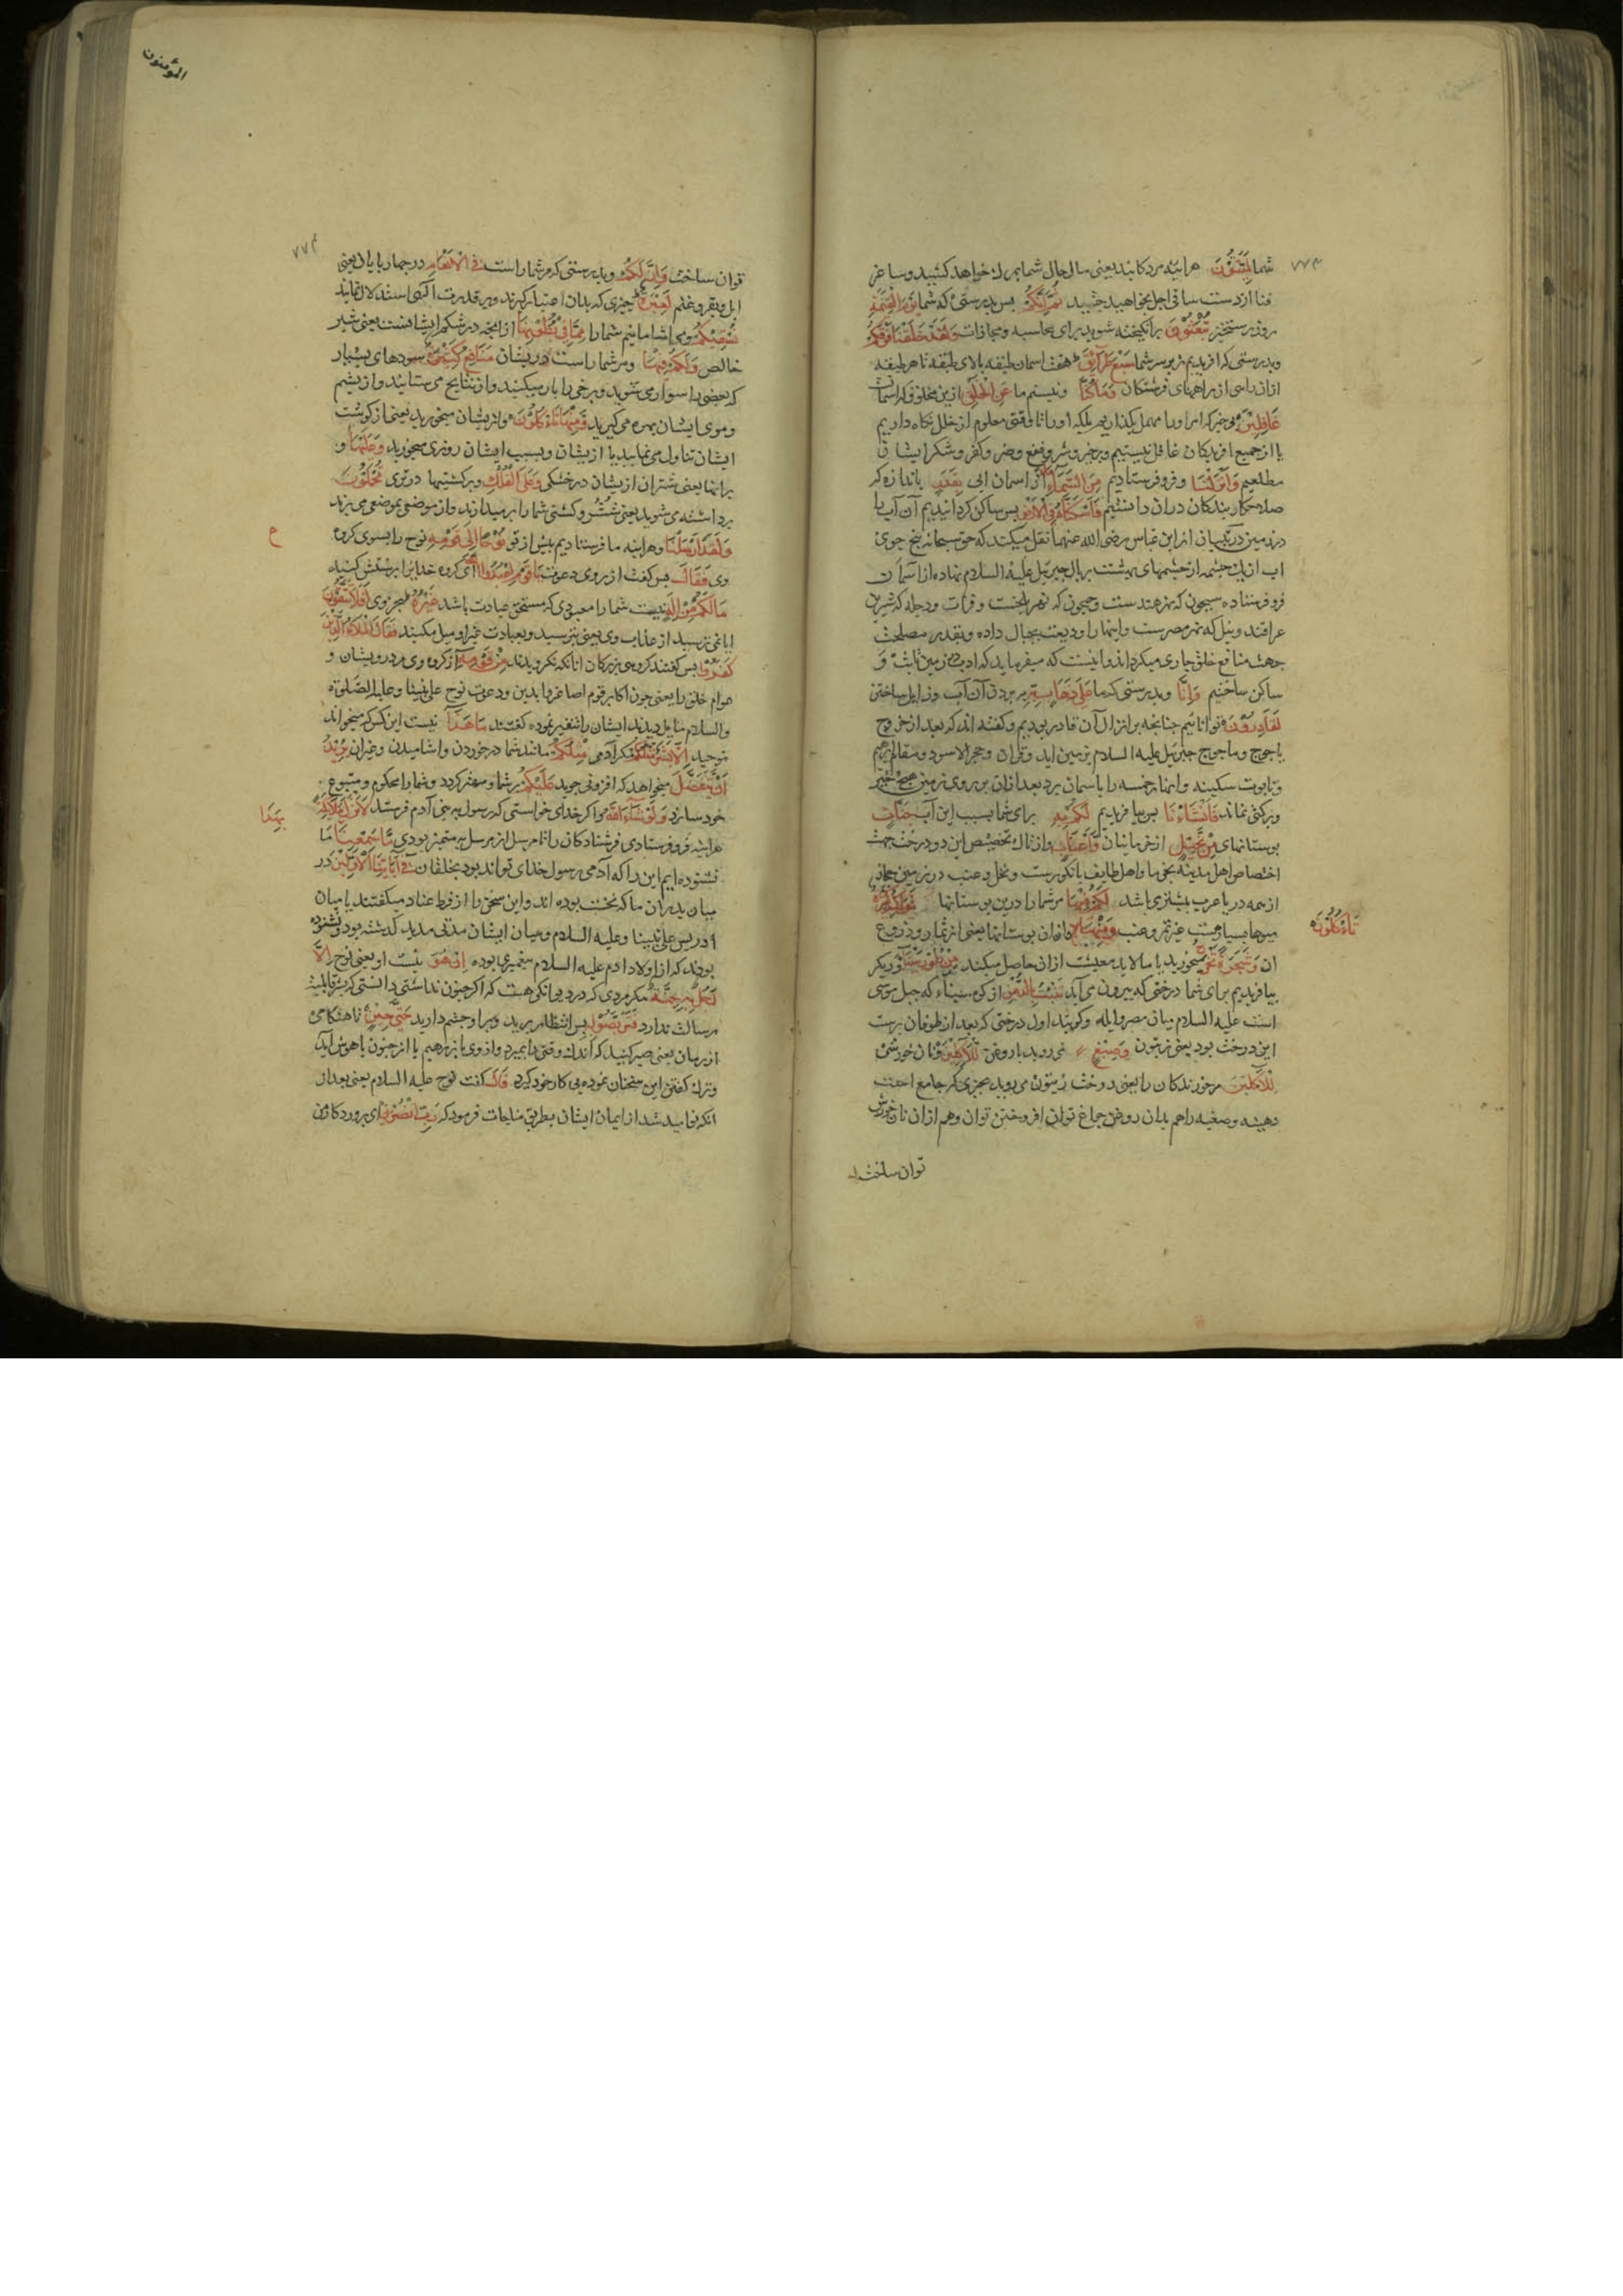 ۷۷۳
شما لَمَيِّتُونَ هراینه مردکانید یعنی مال حال شما بمرك خواهد کشید و ساغر
فنا از دست ساقی اجل بخواهید چشید ثُمَّ اِنَّكُمْ پس بدرستی که شما یَوْمَ الْقِیٰمَةِ
روز رستخیز تُبْعَثُونَ برانکیخته شوید برای محاسبه و مجازات وَلَقَدْ خَلَقْنَا فَوْقَكُمْ
وبدرستی که افریدیم زبر سر شما سَبْعَ طَرَآئِقَ هفت اسمان طبقه بالای طبقه تا هر طبقه
ازان راهی از راههای فرشتکان وَمَا كُنَّا ونیستیم ما عَنِ الْخَلْقِ ازین مخلوق که اسمانست
غَافِلِینَ بیخبر که امر اورا مهمل بکذاریم بلکه اورا تا وقتی معلوم از خلل نکاه داریم
یا از جمیع افریدکان غافل نیستیم وبر خیر و شر و نفع و ضر و کفر و شکر ایشان
مطلعیم وَاَنْزَلْنَا وفرو فرستادیم مِنَ السَّمَآءِ از اسمان ابی بِقَدَرٍ باندازه که
صلاح کار بندکان دران دانستیم فَاَسْكَنَّاهُ فِي الْاَرْضِ پس ساکن کردانیدیم آن آب را
در زمین در تبیان از ابن عباس رضی الله عنهما نقل میکند که حق سبحانه پنج جوی
اب از یك چشمه از چشمهای بهشت بر بال جبرئیل علیه السلام نهاده از آسمان
فرو فرستاده سیحون که نهر هندست وجیحون که نهر بلخست وفرات ودجله که نهرین
عراقند ونیل که نهر مصرست واینها را ودیعت بجبال داده وبقدر مصلحت
جهت منافع خلق جاری میکرداند واینست که میفرماید که اب در زمین ثابت و
ساکن ساختیم وَاِنَّا وبدرستی که ما عَلٰى ذَهَابٍ بِهِ بر بردن آن آب وزایل ساختن
لَقَادِرُونَ تواناییم چنانچه بر انزال آن قادر بودیم وکفته اند که بعد از خروج
یاجوج وماجوج جبرئیل علیه السلام بزمین اید وقران وحجر الاسود ومقام ابرهیم
وتابوت سکینه واینها رخمسه را باسمان برد بعد ازان بر روی زمین هیچ خیر
وبرکتی نماند فَاَنْشَاْنَا پس بیافریدیم لَكُمْ بِهِ برای شما بسبب این آب جَنَّاتٍ
بوستانهای مِنْ نَخِیلٍ از خرمابنان وَاَعْنَابٍ واز تاك تخصیص این دو درخت جهت
اختصاص اهل مدینه بخرما واهل طایف بانکورست ونخل وعنب در زمین حجاز
از همه دیار عرب بیشتر می باشد لَكُمْ فِیهَا مر شما را درین بوستانها فَوَاكِهُ كَثِیرَةٌ
میوها بسیارست غیر تمر وعنب وَمِنْهَا وازان بوستانها یعنی از ثمار وزروع
تَاْكُلُونَ
ان میخورید یا مالابد معیشت ازان حاصل میکنید وَشَجَرَةً تَخْرُجُ مِنْ طُورِ سَیْنَآءَ ودیکر
بیافریدیم برای شما درختی که بیرون می آید تَنْبُتُ بِالدُّهْنِ از کوه سیناء که جبل موسی
است علیه السلام میان مصر وایله وکویند اول درختی که بعد از طوفان برست
این درخت بود یعنی زیتون وَصِبْغٍ می روید با روغن لِلْآكِلِینَ ونان خورشی
لِلْآكِلِینَ مر خورندکان را یعنی درخت زیتون می روید بچیزی که جامع است
دهنیه وصبغیه را هم بدان روغن چراغ توان افروختن توان وهم ازان نان خورش
توان ساخت
المؤمنون
۷۷۴
توان ساخت وَاِنَّ لَكُمْ وبدرستی که مر شما راست فِي الْاَنْعَامِ در چهارپایان یعنی
ابل وبقر وغنم لَعِبْرَةً چیزی که بدان اعتبار کیرند وبر قدرت الهی استدلال نمایند
نُسْقِیكُمْ می اشامانیم شما را مِمَّا فِي بُطُونِهَا از انچه در شکم ایشانست یعنی شیر
خالص وَلَكُمْ فِیهَا ومر شما راست در یشان مَنَافِعُ كَثِیرَةٌ سودهای بسیار
که بعضی را سوار می شوید وبرخی را بار میکنید واز نتایج می ستانید واز پشم
وموی ایشان بهره می کیرید وَمِنْهَا تَاْكُلُونَ واز یشان میخورید یعنی از کوشت
ایشان تناول می نمایید یا از یشان وبسبب ایشان روزی میخورید وَعَلَیْهَا و
برانها یعنی شتران از یشان در خشکی وَعَلَى الْفُلْكِ وبر کشتیها در تری تُحْمَلُونَ
برداشته می شوید یعنی شتر وکشتی شما را بر میدارند واز موضعی بموضعی می برند
ع
وَلَقَدْ اَرْسَلْنَا وهراینه ما فرستادیم پیش از تو نُوحًا اِلٰى قَوْمِهِ نوح را بسوی کروه
وی فَقَالَ پس کفت از روی دعوت یَا قَوْمِ اعْبُدُوا اللهَ ای کروه خدایرا پرستش کنید
مَا لَكُمْ مِنْ اِلٰهٍ نیست شما را معبودی که مستحق عبادت باشد غَیْرُهُ بجز وی اَفَلَا تَتَّقُونَ
ایا نمی ترسید از عذاب وی یعنی بترسید وبعبادت غیر او میل مکنید فَقَالَ الْمَلَؤُا الَّذِینَ
كَفَرُوا پس کفتند کروهی بزرکان انانکه نکرویدند مِنْ قَوْمِهِ از کروه وی مر درویشان و
عوام خلق را یعنی چون اکابر قوم اصاغر را بدین ودعوت نوح علی نبینا وعلیه الصلوة
والسلام مایل دیدند ایشان را تنفیر نموده کفتند مَا هٰذَا نیست این کس که میخواند
بتوحید اِلَّا بَشَرٌ مِثْلُكُمْ مکر آدمی مِثْلُكُمْ مانند شما در خوردن واشامیدن وغیران یُرِیدُ
اَنْ یَتَفَضَّلَ میخواهد که افزونی جوید عَلَیْكُمْ بر شما ومهتر کردد وشما را محکوم ومتبوع
خود سازد وَلَوْ شَآءَ اللهُ واکر خدای خواستی که رسول به بنی آدم فرستد لَاَنْزَلَ مَلٰٓئِكَةً
هراینه فرو فرستادی فرشتکان را تا مرسل از مرسل الیه متمیز بودی مَا سَمِعْنَا ما
بِهٰذَا
نشنوده ایم این را که آدمی رسول خدای تواند بود بخلقان فِي اٰبَآئِنَا الْاَوَّلِینَ در
میان پدران ما که نخست بوده اند واین سخن را از فرط عناد میکفتند یا میان
ادریس علی نبینا وعلیه السلام ومیان ایشان مدتی مدید کذشته بود ونشنوده
بودند که از اولاد ادم علیه السلام پیغمبری بوده اِنْ هُوَ نیست او یعنی نوح اِلَّا
رَجُلٌ بِهِ جِنَّةٌ مکر مردی که درو دیوانکی هست که اکر جنون نداشتی دانستی که بشر قابلیت
رسالت ندارد فَتَرَبَّصُوا بِهِ پس انتظار برید ویرا وچشم دارید حَتّٰى حِینٍ تا هنکامی
از زمان یعنی صبر کنید که اندك وقتی را بمیرد واز وی باز رهیم یا از جنون باهوش آید
وترك کفتن این سخنان نموده پی کار خود کیرد قَالَ کفت نوح علیه السلام یعنی بعد از
انکه نوامید شد از ایمان ایشان بطریق مناجات فرمود که رَبِّ انْصُرْنِي ای پروردکار من